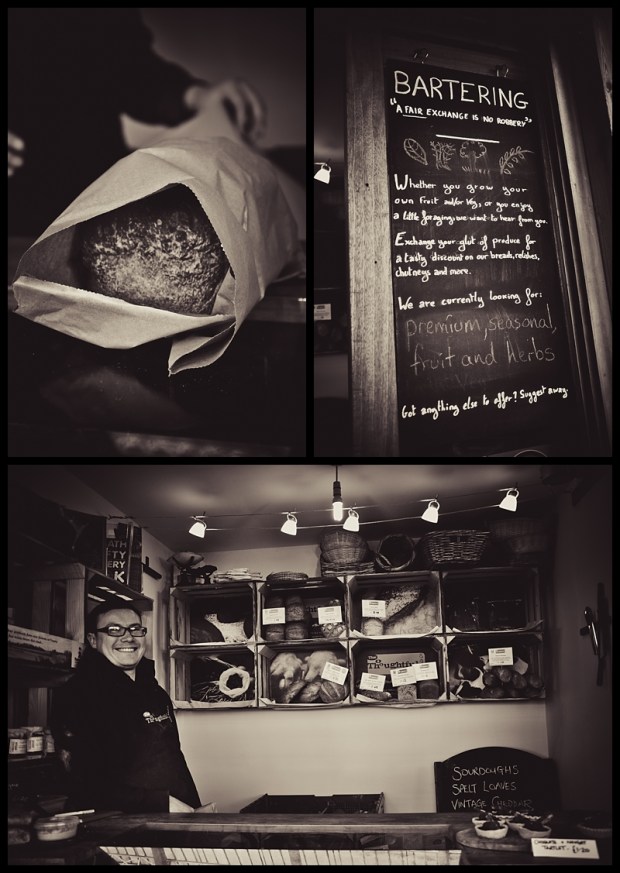 BARTERING
"A FAIR EXCHANGE IS NO ROBBERY"
Whether you grow your
own fruit and/or veg, or you enjoy
a little foraging, we want to hear from you.
Exchange your glut of produce for
a tasty discount on our breads, relishes,
chutneys and more.
We are currently looking for:
premium, seasonal,
fruit and herbs
Got anything else to offer? Suggest away.
The
Thoughtful
SOURDOUGHS
SPELT LOAVES
VINTAGE CHEDDAR